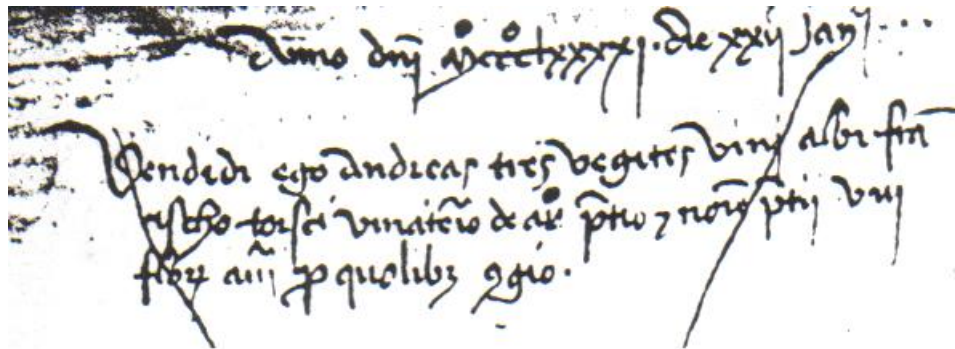 Anno dnī Mº cccºlxxxxi. die xxii Janȝ
Vendidi ego Andreas tres vegetes vini albi frā
cischo torsci vinatēio de ar̊ p̄tio ⁊ noīo p̄tii viii
flor aurī ꝓ quolibꝫ ꝯgio.